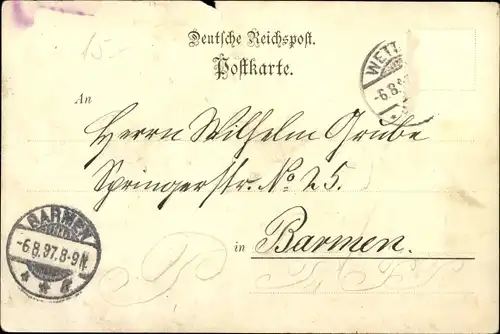 15-
Deutsche Reichspost.
Postkarte.
WETT
-6.8.97
An
Herrn Wilhelm Grube
Springerstr. No 25.
in Barmen.
BARMEN
-6.8.97.8-9N